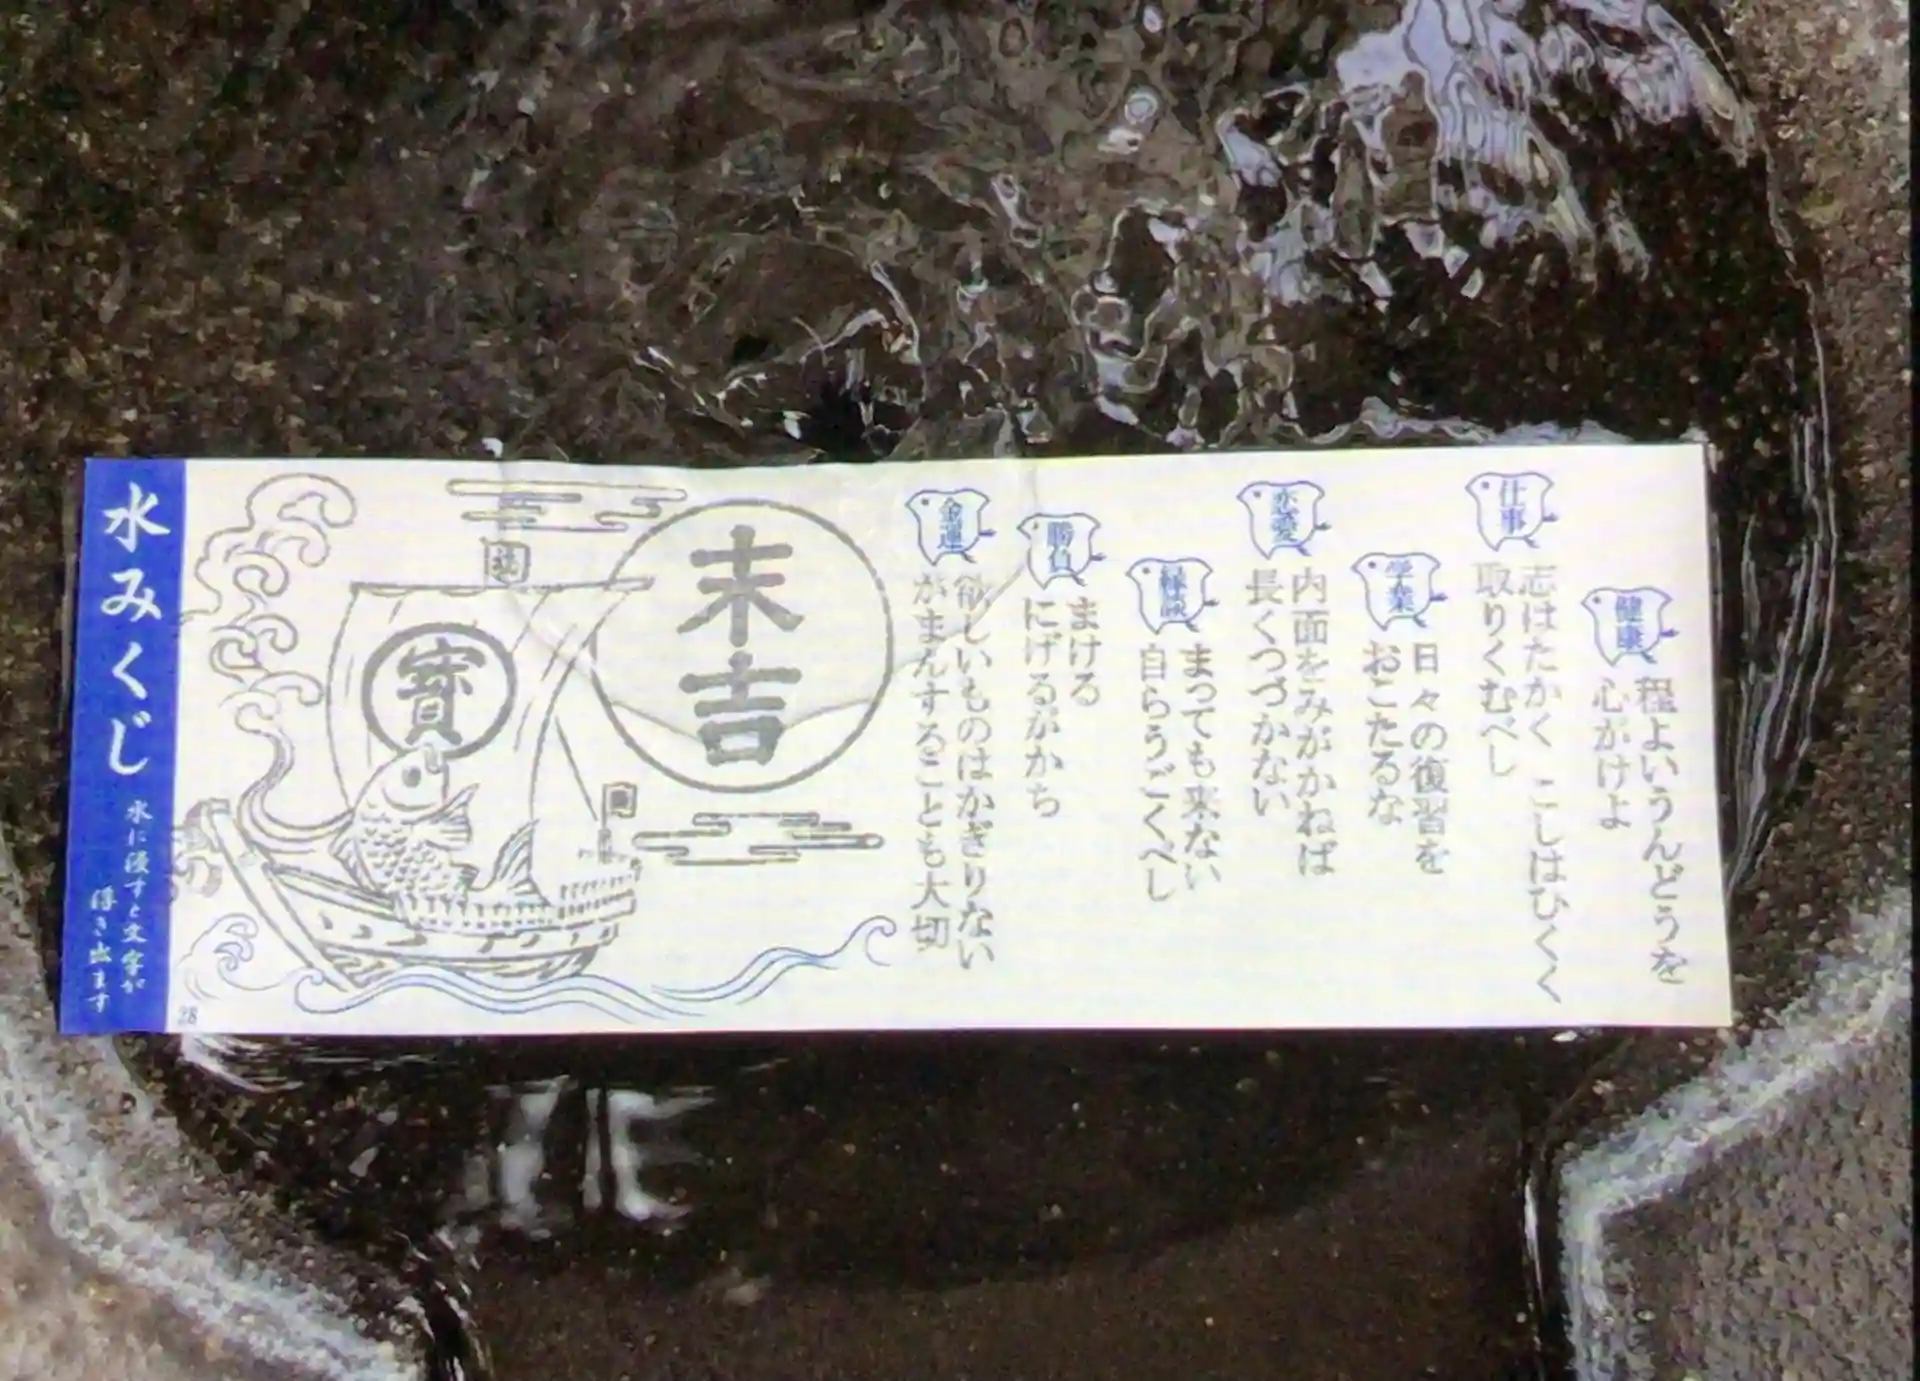 健康
程よいうんどうを
心がけよ
仕事
志はたかく こしはひくく
取りくむべし
学業
日々の復習を
おこたるな
恋愛
内面をみがかねば
長くつづかない
縁談
まっても来ない
自らうごくべし
勝負
まける
にげるがかち
金運
欲しいものはかぎりない
がまんすることも大切
末吉
寳
水みくじ
水に浸すと文字が
浮き出ます
28